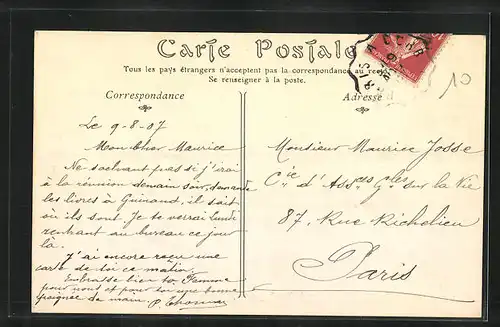 Carte Postale
Tous les pays étrangers n'acceptent pas la correspondance au recto
Se renseigner à la poste.
Correspondance
Adresse
10
Le 9-8-07
Mon cher Maurice
Ne sachant pas si j'irai
à la réunion demain soir, demande
les livres à Guinand, il sait
où ils sont. Je te verrai lundi
rentrant au bureau ce jour
là.
J'ai encore reçu une
carte de toi ce matin.
Embrasse bien ta Femme
pour nous et pour toi une bonne
poignée de main. P. Thomas
Monsieur Maurice Josse
Cie d'Assces Gles sur la Vie
87, Rue Richelieu
Paris